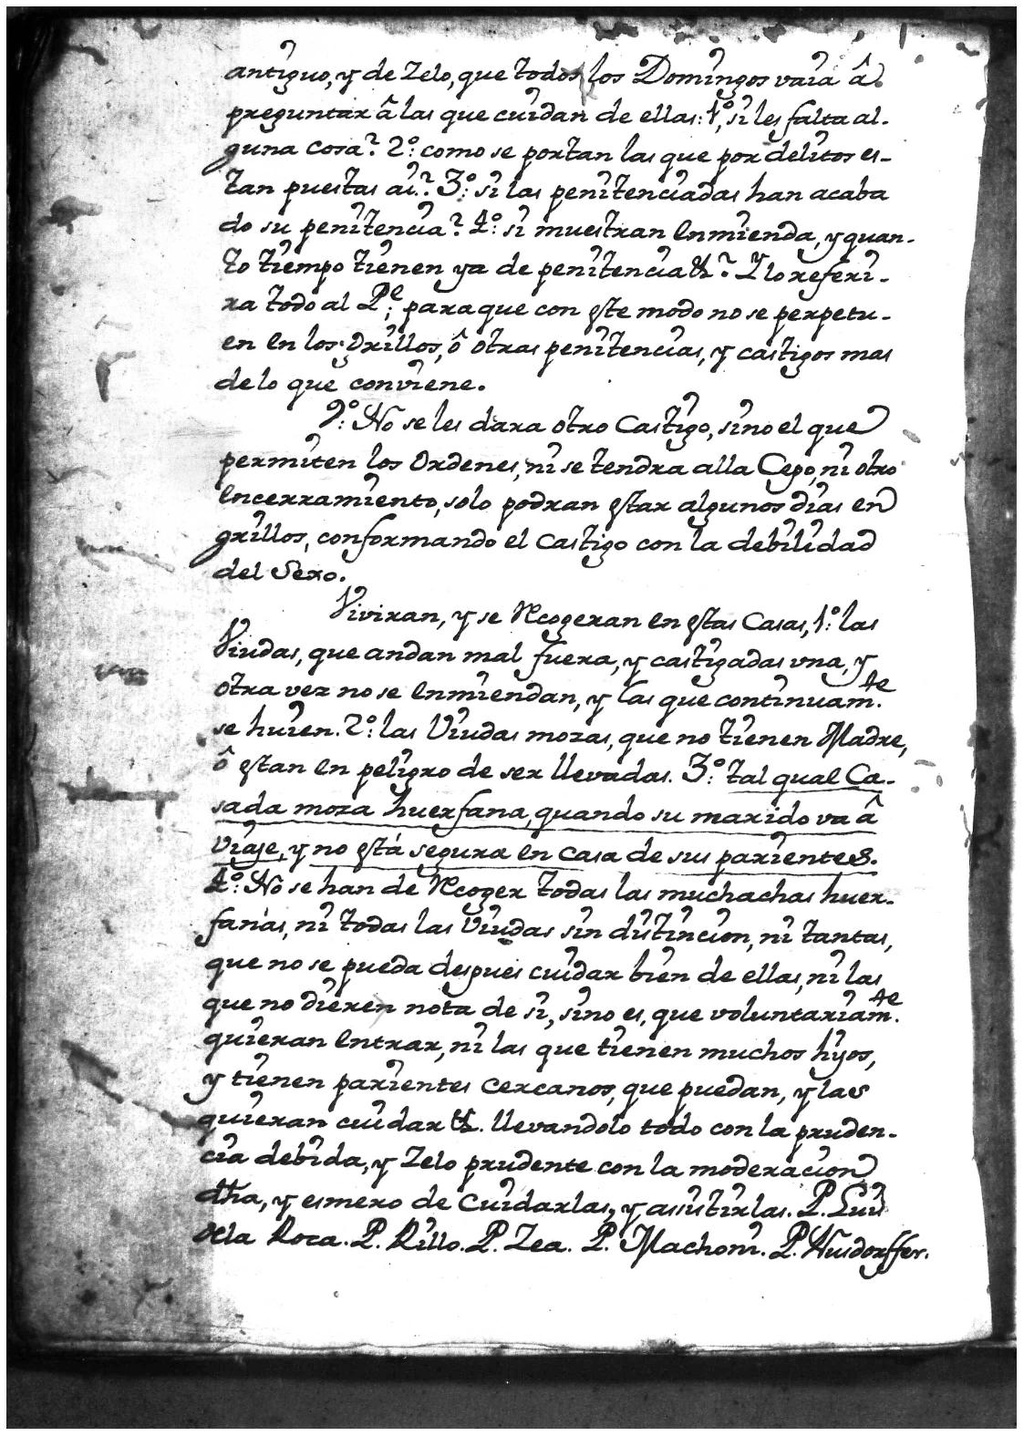 antiguo, y de Zelo, que todos los Domingos vaia â
preguntar â las que cuidan de ellas: 1º, si les falta al-
guna cosa? 2º: como se portan las que por delitos es-
tan puestas ai? 3º: si las penitenciadas han acaba
do su penitencia? 4º: si muestran enmienda, y quan-
to tiempo tienen ya de penitencia &? Y lo referi-
ra todo al Pe; para que con este modo no se perpetu-
en en los Grillos, ô otras penitencias, y castigos mas
de lo que conviene.
9º: No se les dara otro Castigo, sino el que
permiten los Ordenes, ni se tendra alla Cepo, ni otro
encerramiento, solo podran estar algunos dias en
grillos, conformando el Castigo con la debilidad
del Sexo.
Viviran, y se Recogeran en estas Casas, 1º: las
Viudas, que andan mal fuera, y castigadas una, y
otra vez no se enmiendan, y las que continuamte.
se huien. 2º: las Viudas mozas, que no tienen Madre,
ô estan en peligro de ser llevadas. 3º: tal qual Ca-
sada moza huerfana, quando su marido va â
Viaje, y no está segura en casa de sus parientes.
4º: No se han de Recoger todas las muchachas huer-
fanas, ni todas las Viudas sin distincion, ni tantas,
que no se pueda despues cuidar bien de ellas, ni las
que no dieren nota de si, sino es, que voluntariamte.
quieran entrar, ni las que tienen muchos hijos,
y tienen parientes cercanos, que puedan, y las
quieran cuidar &. llevandolo todo con la pruden-
cia debida, y Zelo prudente con la moderacion
dha, y esmero de Cuidarlas, y asistirlas. P. Luis
de la Roca. P. Rillo. P. Zea. P. Machoni. P. Nusdorffer.